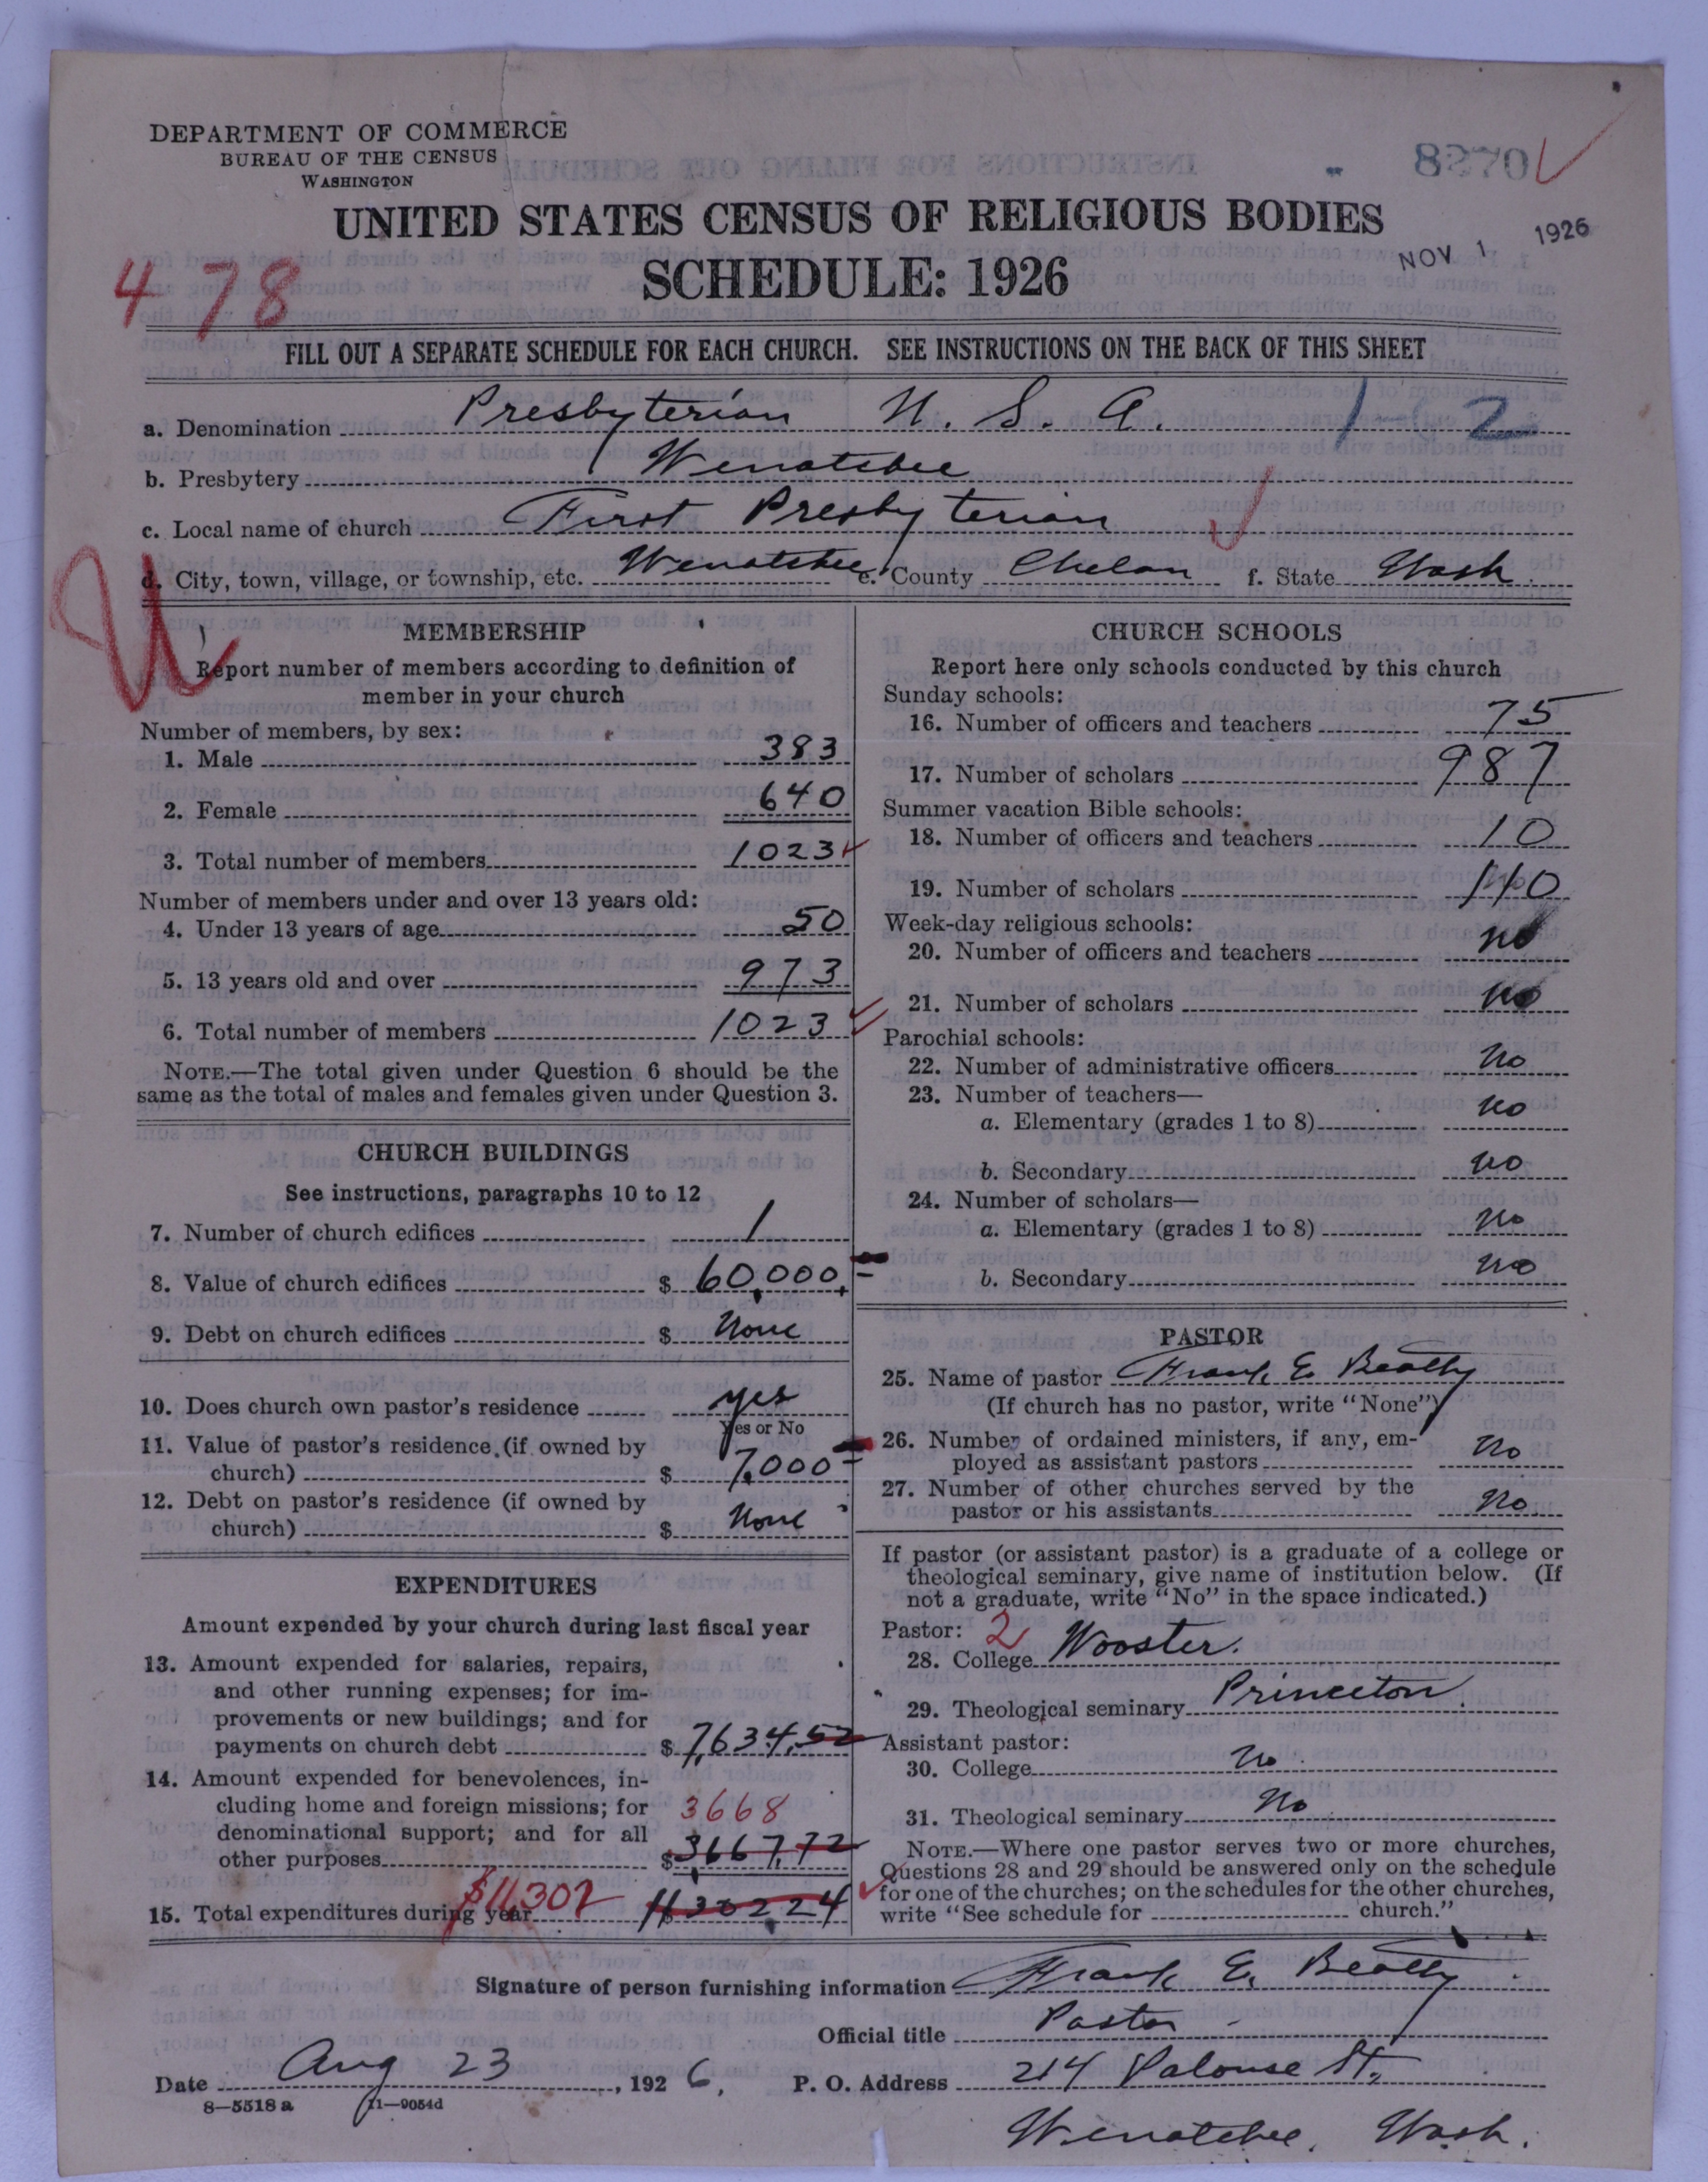 DEPARTMENT OF COMMERCE
BUREAU OF THE CENSUS
WASHINGTON
8270
UNITED STATES CENSUS OF RELIGIOUS BODIES
NOV 1 1926
478
SCHEDULE: 1926
FILL OUT A SEPARATE SCHEDULE FOR EACH CHURCH. SEE INSTRUCTIONS ON THE BACK OF THIS SHEET
a. Denomination Presbyterian U. S. A. 1-02
b. Presbytery Wenatchee
c. Local name of church First Presbyterian
d. City, town, village, or township, etc. Wenatchee e. County Chelan f. State Wash.
U
MEMBERSHIP
Report number of members according to definition of
member in your church
Number of members, by sex:
1. Male 383
2. Female 640
3. Total number of members 1023
Number of members under and over 13 years old:
4. Under 13 years of age 50
5. 13 years old and over 973
6. Total number of members 1023
NOTE.—The total given under Question 6 should be the
same as the total of males and females given under Question 3.
CHURCH BUILDINGS
See instructions, paragraphs 10 to 12
7. Number of church edifices 1
8. Value of church edifices $ 60,000
9. Debt on church edifices $ None
10. Does church own pastor's residence yes
Yes or No
11. Value of pastor's residence (if owned by
church) $ 7,000
12. Debt on pastor's residence (if owned by
church) $ None
EXPENDITURES
Amount expended by your church during last fiscal year
13. Amount expended for salaries, repairs,
and other running expenses; for im-
provements or new buildings; and for
payments on church debt $ 7,634.52
14. Amount expended for benevolences, in-
cluding home and foreign missions; for 3668
denominational support; and for all
other purposes $ 3,667.72
15. Total expenditures during year $11,302 11302.24
CHURCH SCHOOLS
Report here only schools conducted by this church
Sunday schools:
16. Number of officers and teachers 75
17. Number of scholars 987
Summer vacation Bible schools:
18. Number of officers and teachers 10
19. Number of scholars 110
Week-day religious schools:
20. Number of officers and teachers no
21. Number of scholars no
Parochial schools:
22. Number of administrative officers no
23. Number of teachers—
a. Elementary (grades 1 to 8) no
b. Secondary no
24. Number of scholars—
a. Elementary (grades 1 to 8) no
b. Secondary no
PASTOR
25. Name of pastor Frank E. Beatty
(If church has no pastor, write "None")
26. Number of ordained ministers, if any, em-
ployed as assistant pastors no
27. Number of other churches served by the
pastor or his assistants no
If pastor (or assistant pastor) is a graduate of a college or
theological seminary, give name of institution below. (If
not a graduate, write "No" in the space indicated.)
Pastor: 2
28. College Wooster.
29. Theological seminary Princeton.
Assistant pastor:
30. College No
31. Theological seminary No
NOTE.—Where one pastor serves two or more churches,
Questions 28 and 29 should be answered only on the schedule
for one of the churches; on the schedules for the other churches,
write "See schedule for church."
Signature of person furnishing information Frank E. Beatty
Official title Pastor
Date Aug 23, 1926. P. O. Address 214 Palouse St.,
8—5518 a 11—9054d
Wenatchee, Wash.